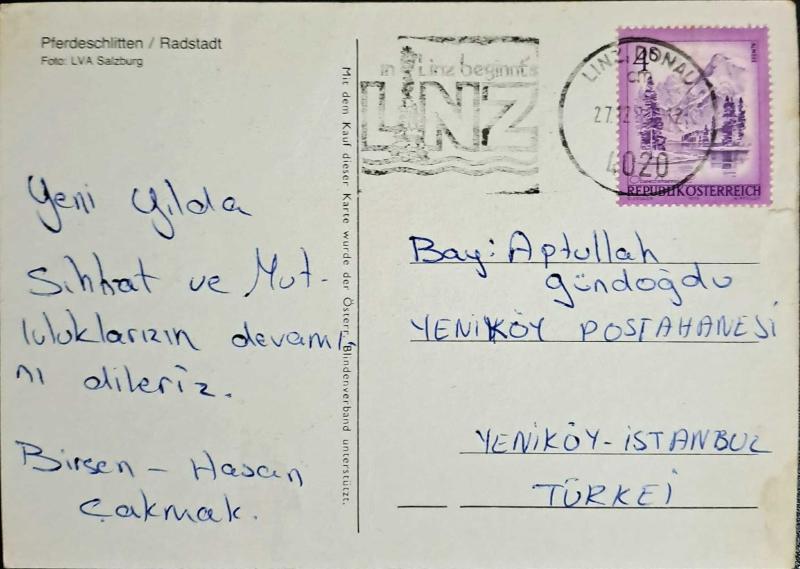 Pferdeschlitten / Radstadt
Foto: LVA Salzburg
Yeni yılda
Sıhhat ve Mut-
luluklarızın devamı
nı dileriz.
Birsen - Hasan
Çakmak.
Mit dem Kauf dieser Karte wurde der Österr. Blindenverband unterstützt.
in Linz beginnt's
LINZ
LINZ/DONAU
4020
4S
REPUBLIK ÖSTERREICH
Bay: Aptullah
gündoğdu
YENİKÖY POSTAHANESİ
YENİKÖY-İSTANBUL
TÜRKEİ